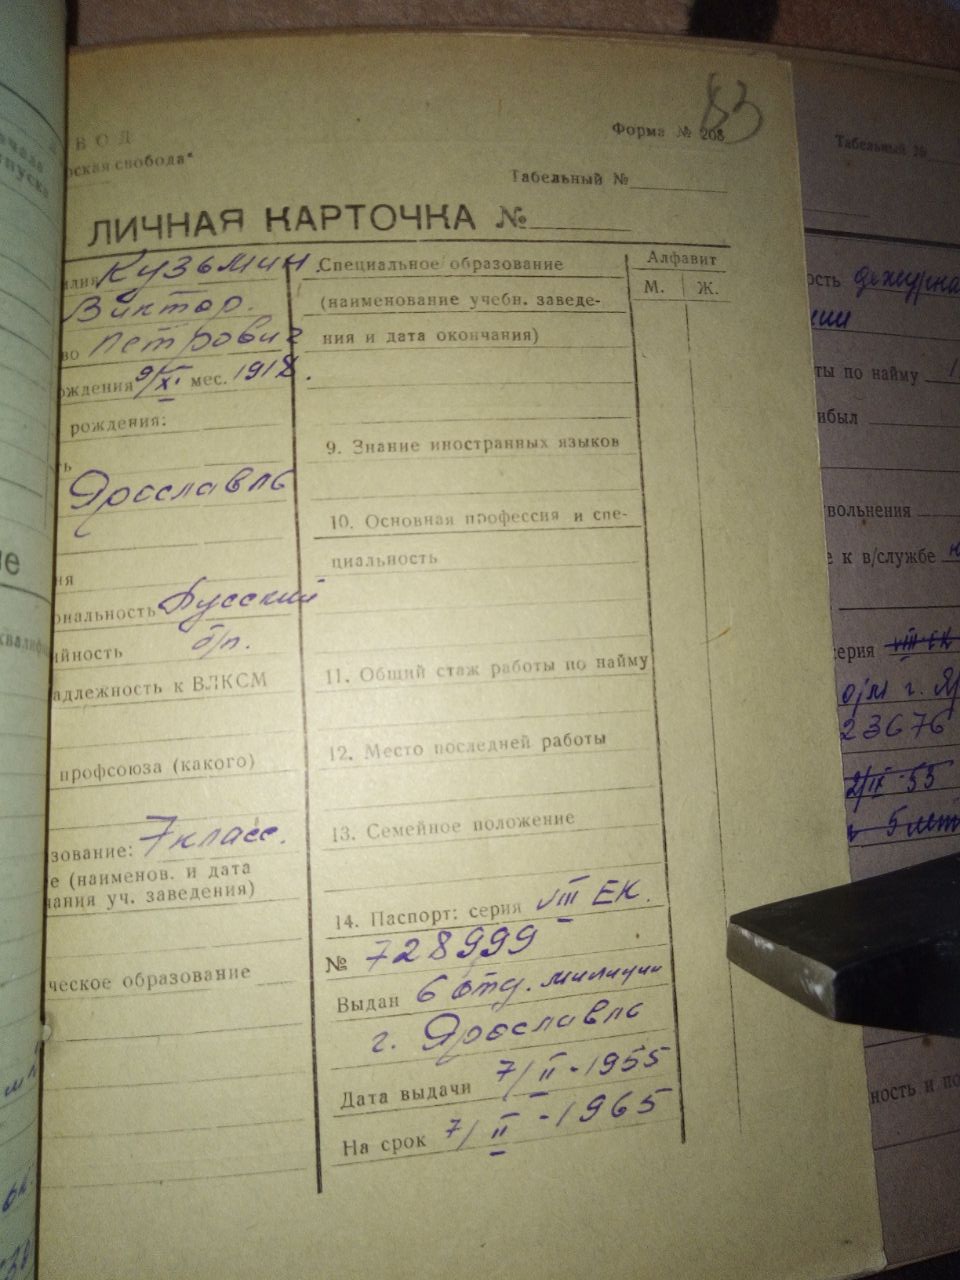 83
ВОД
рская свобода"
Форма № 208
Табельный №
ЛИЧНАЯ КАРТОЧКА №
илия Кузьмин
Виктор.
во Петрович
ождения 9/XI мес. 1918.
рождения:
ть
Ярославль
ия
ональность Русский
ийность б/п.
адлежность к ВЛКСМ
профсоюза (какого)
зование: 7 класс.
е (наименов. и дата
ания уч. заведения)
ческое образование
Специальное образование
(наименование учебн. заведе-
ния и дата окончания)
9. Знание иностранных языков
10. Основная профессия и спе-
циальность
11. Общий стаж работы по найму
12. Место последней работы
13. Семейное положение
14. Паспорт: серия VIII ЕК.
№ 728999
Выдан 6 отд. милиции
г. Ярославль
Дата выдачи 7/II-1955
На срок 7/II-1965
Алфавит
М. Ж.
Табельный №
ость дежурна
ты по найму
ибыл
вольнения
е к в/службе
серия VIII ЕК
о/м г. Яр
23676
2/IX-55
5 лет
ность и по